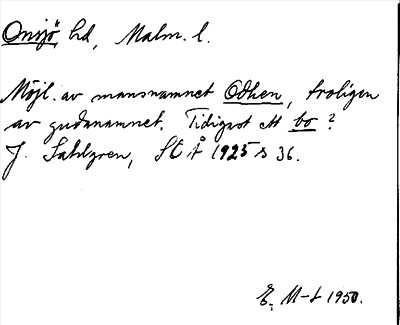 Onsjö hd, Malm. l.
Möjl. av mansnamnet Odhen, troligen
av gudanamnet. Tidigast ett bo?
J. Sahlgren, St Å 1925 s 36.
E. M-t 1950.